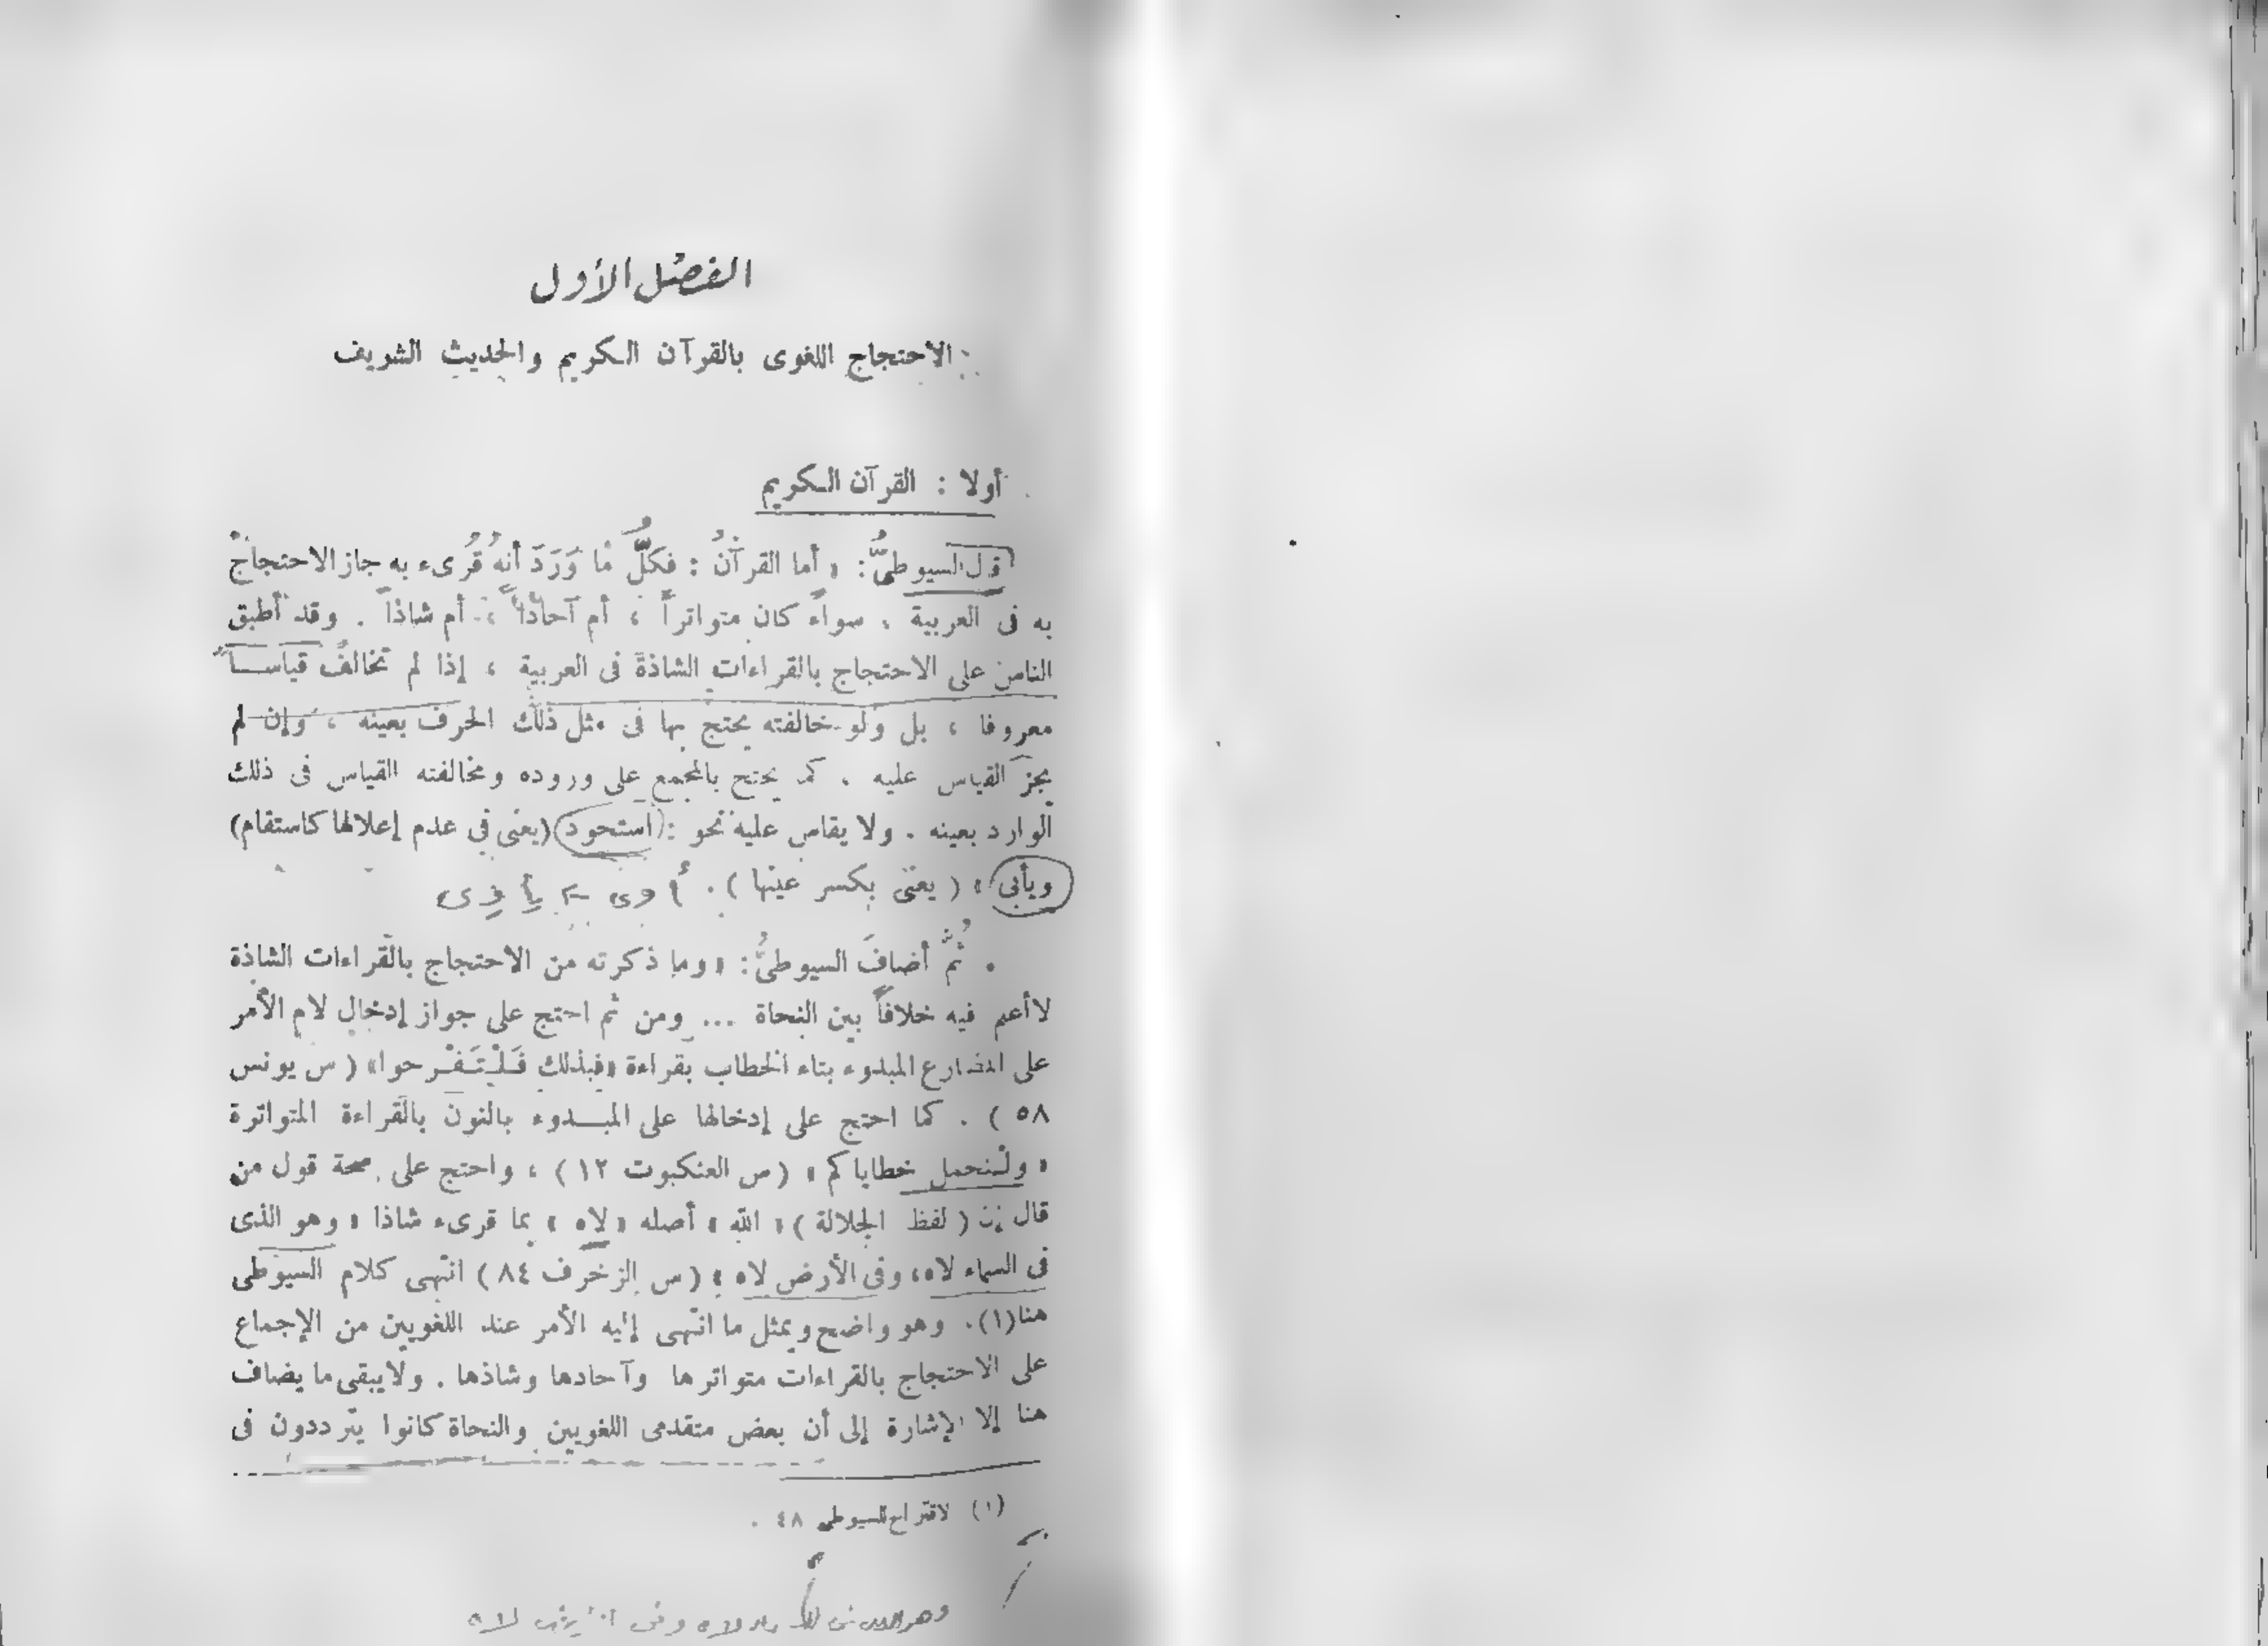 الفصل الأول
الاحتجاج اللغوى بالقرآن الكريم والحديث الشريف
أولا : القرآن الكريم
قال السيوطىُّ : « أما القرآنُ : فكلُّ ما وَرَدَ أنهُ قُرىء به جاز الاحتجاجُ
به فى العربية ، سواءً كان متواتراً ، أم آحاداً ، أم شاذاً . وقد أطبق
الناس على الاحتجاج بالقراءات الشاذة فى العربية ، إذا لم تخالفُ قياســاً
معروفا ، بل ولو خالفته يحتج بها فى مثل ذلك الحرف بعينه ، وإن لم
يجز القياس عليه ، كما يحتج بالمجمع على وروده ومخالفته القياس فى ذلك
الوارد بعينه . ولا يقاس عليه نحو : استحوذ (يعنى فى عدم إعلالها كاستقام)
ويأبى » ( يعنى بكسر عينها ) .
ثُمَّ أضافَ السيوطىُّ : « وما ذكرته من الاحتجاج بالقراءات الشاذة
لا أعلم فيه خلافاً بين النحاة ... ومن ثم احتج على جواز إدخال لام الأمر
على المضارع المبدوء بتاء الخطاب بقراءة «فبذلك فَـلْـتَـفْـرحوا» ( س يونس
٥٨ ) . كما احتج على إدخالها على المبــدوء بالنون بالقراءة المتواترة
« ولْنحمل خطاياكم » ( س العنكبوت ١٢ ) ، واحتج على صحة قول من
قال إن ( لفظ الجلالة ) « الله » أصله « لاه » بما قرىء شاذا « وهو الذى
فى السماء لاه، وفى الأرض لاه » ( س الزخرف ٨٤ ) انتهى كلام السيوطى
هنا(١). وهو واضح ويمثل ما انتهى إليه الأمر عند اللغويين من الإجماع
على الاحتجاج بالقراءات متواترها وآحادها وشاذها . ولا يبقى ما يضاف
هنا إلا الإشارة إلى أن بعض متقدمى اللغويين والنحاة كانوا يترددون فى
(١) الاقتراح للسيوطى ٤٨ .
لاه وفى لاه